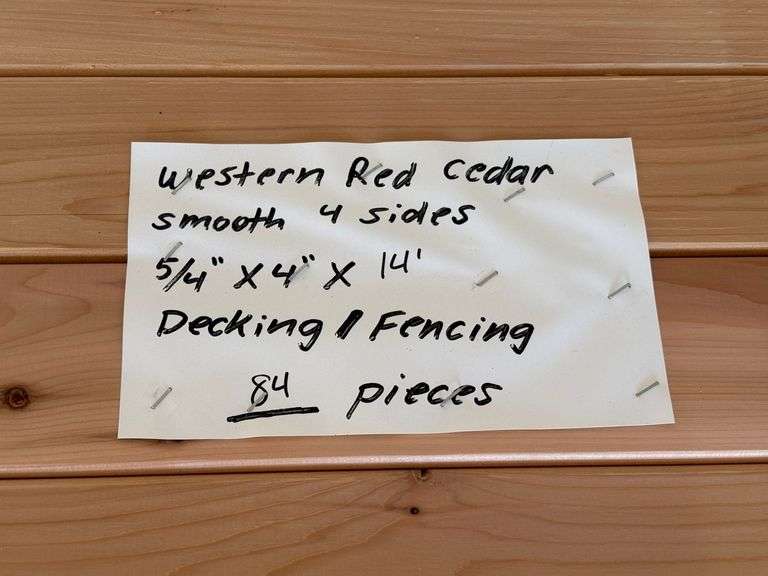 Western Red Cedar
smooth 4 sides
5/4" X 4" X 14'
Decking / Fencing
84 pieces